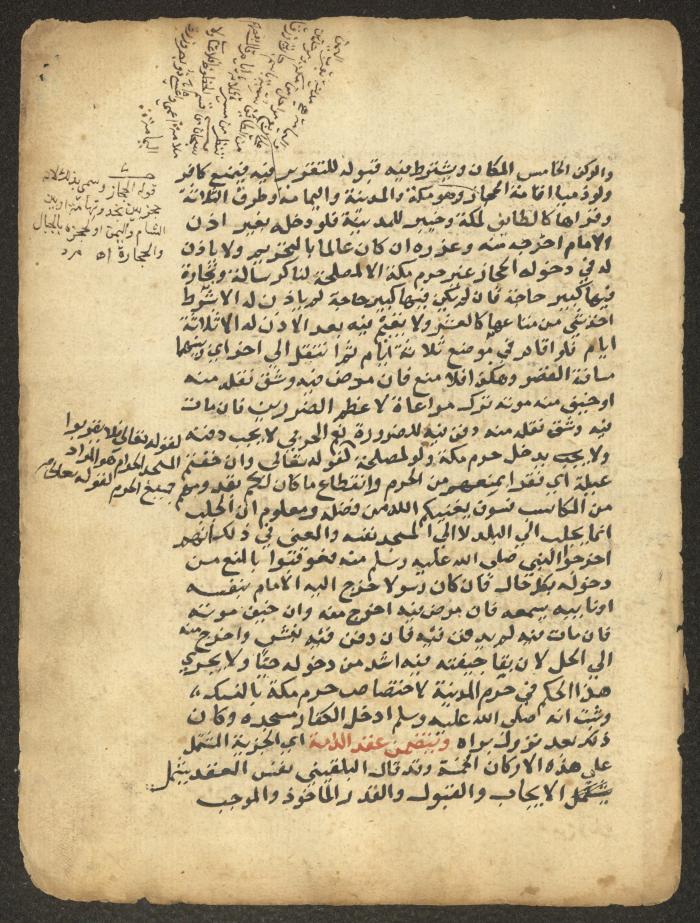 والركن الخامس المكان ويشترط فيه قبوله للتقرير فيه فيمنع كافر
ولو ذميا اقامة الحجاز وهو مكة والمدينة واليمامة وطرق الثلاثة
وقراها كالطائف لمكة وخيبر للمدينة فلو دخله بغير اذن
الامام اخرجه منه وعزره ان كان عالما بالتحريم ولا ياذن
له في دخوله الحجاز غير حرم مكة الا لمصلحة لنا كرسالة وتجارة
فيها كبير حاجة فان لم يكن فيها كبير حاجة لم ياذن له الا بشرط
اخذ شي من متاعها كالعشر ولا يقيم فيه بعد الاذن له الا ثلاثة
ايام فلو اقام في موضع ثلاثة ايام ثم انتقل الى اخر اي وبينهما
مسافة القصر وهكذا فلا منع فان مرض فيه وشق نقله منه
او خيف منه موته ترك مراعاة لاعظم الضررين فان مات
فيه وشق نقله منه دفن فيه للضرورة نعم الحربي لا يجب دفنه
ولا يدخل حرم مكة ولو لمصلحة لقوله تعالى وان خفتم
عيلة اي فقرا بمنعهم من الحرم وانقطاع ما كان لكم بقدومهم
من المكاسب فسوف يغنيكم الله من فضله ومعلوم ان الجلب
انما يجلب الى البلد لا الى المسجد نفسه والمعنى في ذلك انهم
اخرجوا النبي صلى الله عليه وسلم منه فعوقبوا بالمنع من
دخوله بكل حال فان كان رسولا خرج اليه الامام بنفسه
او نايبه يسمعه فان مرض فيه اخرج منه وان خيف موته
فان مات فيه لم يدفن فيه فان دفن فيه نبش واخرج منه
الى الحل لان بقا جيفته فيه اشد من دخوله حيا ولا يجري
هذا الحكم في حرم المدينة لاختصاص حرم مكة بالنسك
وثبت انه صلى الله عليه وسلم ادخل الكفار مسجده وكان
ذلك بعد نزول براه ويتضمن عقد الذمة اي الجزية المشتمل
على هذه الاركان الخمسة وقد قال البلقيني نفس العقد يشتمل
الايجاب والقبول والقدر الماخوذ والموجب
لقوله تعالى فلا يقربوا
المسجد الحرام والمراد
جميع الحرم لقوله تعالى
قوله الحجاز وسمي بذلك لانه
حجز بين نجد وتهامة او بين
الشام واليمن او لحجزه بالجبال
والحجارة اه